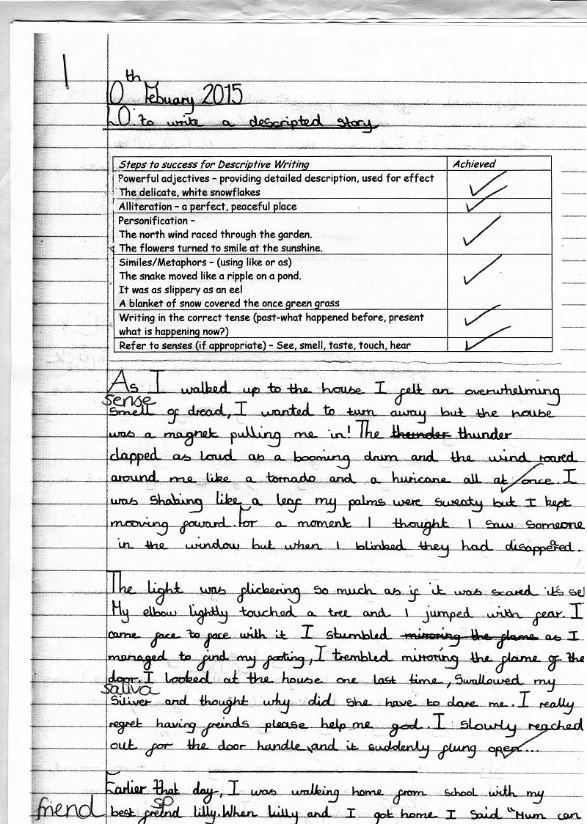 1
0th Febuary 2015
LO: to write a descripted story
Steps to success for Descriptive Writing Achieved
Powerful adjectives – providing detailed description, used for effect
The delicate, white snowflakes
Alliteration – a perfect, peaceful place
Personification –
The north wind raced through the garden.
The flowers turned to smile at the sunshine.
Similes/Metaphors – (using like or as)
The snake moved like a ripple on a pond.
It was as slippery as an eel
A blanket of snow covered the once green grass
Writing in the correct tense (past-what happened before, present
what is happening now?)
Refer to senses (if appropriate) – See, smell, taste, touch, hear
As I walked up to the house I felt an overwhelming
sense
smell of dread, I wanted to turn away but the house
was a magnet pulling me in! The thunder thunder
clapped as loud as a booming drum and the wind roared
around me like a tornado and a huricane all at once. I
was shaking like a leaf my palms were sweaty but I kept
mooving foward. for a moment I thought I saw someone
in the window but when I blinked they had disappered.
The light was flickering so much as if it was scared it's sel
My elbow lightly touched a tree and I jumped with fear. I
came face to face with it I stumbled mirroring the flame as I
managed to find my footing, I trembled mirroring the flame of the
door. I looked at the house one last time, swallowed my
saliva
siliver and thought why did she have to dare me. I really
regret having freinds please help me god. I slowly reached
out for the door handle and it suddenly flung open...
Earlier that day, I was walking home from school with my
friend
sp
best freind lilly. When lilly and I got home I said "Mum can